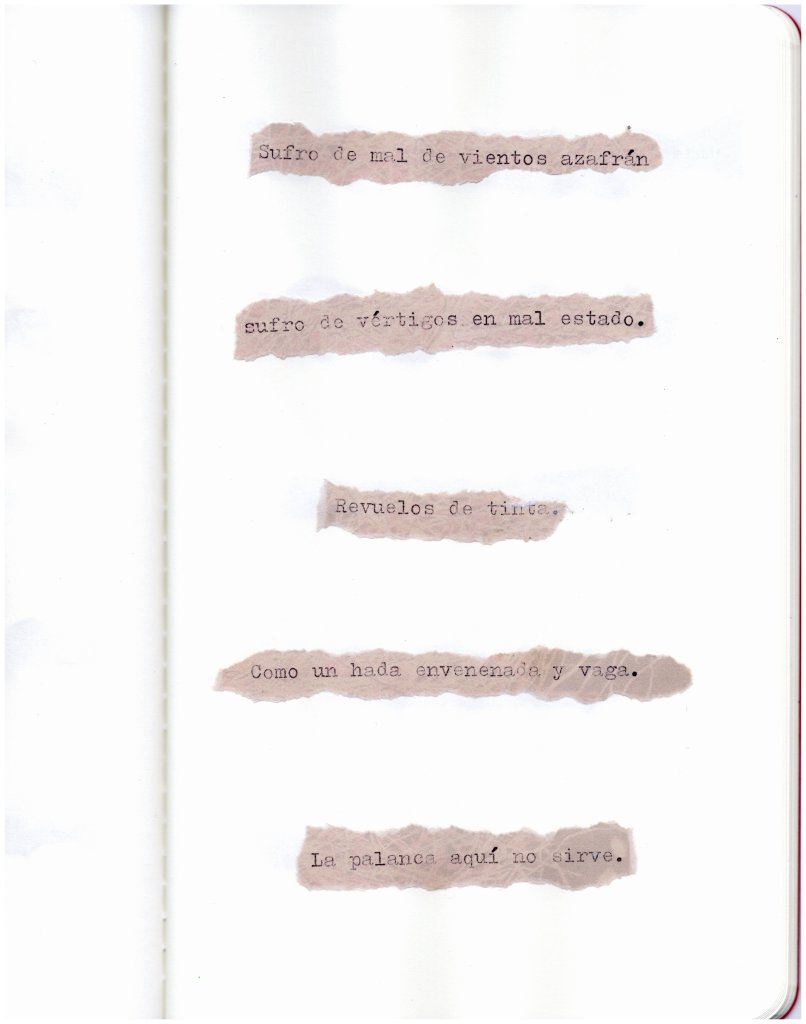 Sufro de mal de vientos azafrán
sufro de vértigos en mal estado.
Revuelos de tinta.
Como un hada envenenada y vaga.
La palanca aquí no sirve.